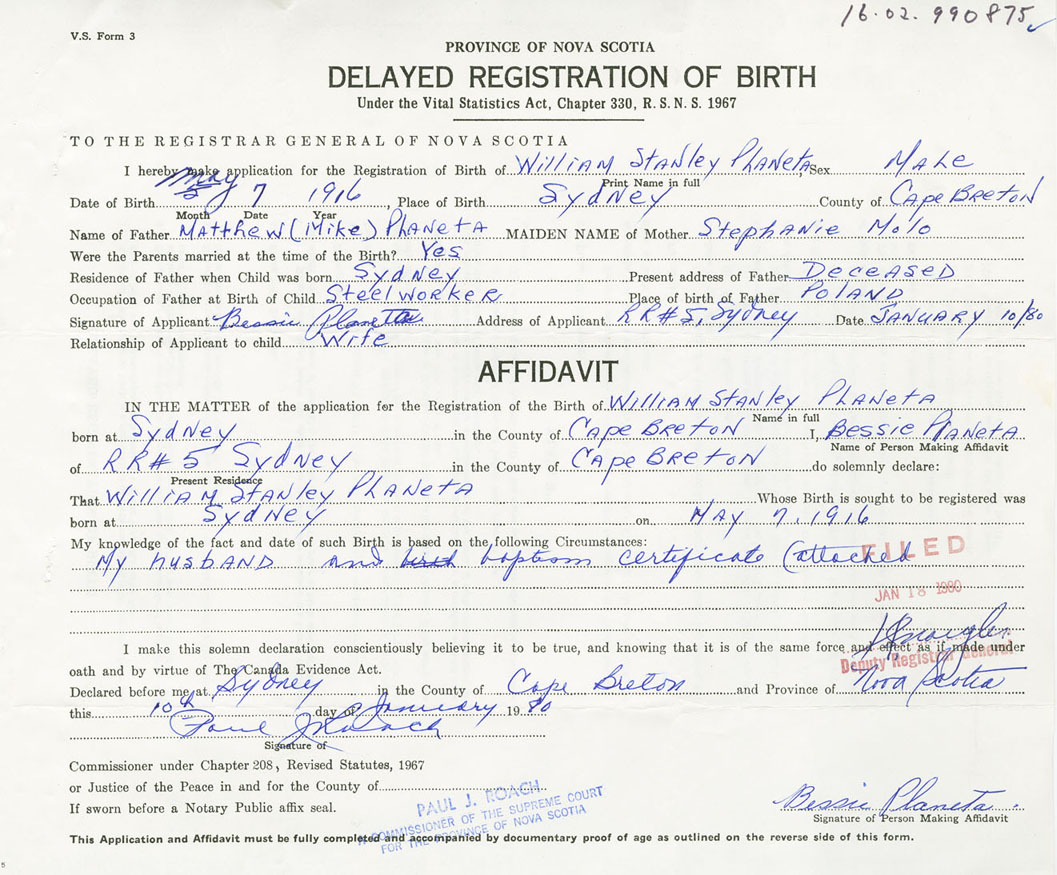 16.02. 990875
V.S. Form 3
PROVINCE OF NOVA SCOTIA
DELAYED REGISTRATION OF BIRTH
Under the Vital Statistics Act, Chapter 330, R.S.N.S. 1967
TO THE REGISTRAR GENERAL OF NOVA SCOTIA
I hereby make application for the Registration of Birth of William Stanley Planeta Sex Male
Print Name in full
Date of Birth May 7 1916, Place of Birth Sydney County of Cape Breton
Month Date Year
Name of Father Matthew (Mike) Planeta MAIDEN NAME of Mother Stephanie Molo
Were the Parents married at the time of the Birth? Yes
Residence of Father when Child was born Sydney Present address of Father Deceased
Occupation of Father at Birth of Child Steelworker Place of birth of Father Poland
Signature of Applicant Bessie Planeta Address of Applicant RR# 5, Sydney Date January 10/80
Relationship of Applicant to child Wife
AFFIDAVIT
IN THE MATTER of the application for the Registration of the Birth of William Stanley Planeta
Name in full
born at Sydney in the County of Cape Breton I, Bessie Planeta
Name of Person Making Affidavit
of RR# 5 Sydney in the County of Cape Breton do solemnly declare:
Present Residence
That William Stanley Planeta Whose Birth is sought to be registered was
born at Sydney on May 7, 1916
My knowledge of the fact and date of such Birth is based on the following Circumstances:
My husband and birth baptism certificate (attached
FILED
JAN 18 1980
I make this solemn declaration conscientiously believing it to be true, and knowing that it is of the same force and effect as if made under
oath and by virtue of The Canada Evidence Act.
Deputy Registrar General
Declared before me at Sydney in the County of Cape Breton and Province of Nova Scotia
this 10th day of January 1980
Paul J Roach
Signature of
Commissioner under Chapter 208, Revised Statutes, 1967
or Justice of the Peace in and for the County of
If sworn before a Notary Public affix seal.
PAUL J. ROACH
A COMMISSIONER OF THE SUPREME COURT
FOR THE PROVINCE OF NOVA SCOTIA
Bessie Planeta
Signature of Person Making Affidavit
This Application and Affidavit must be fully completed and accompanied by documentary proof of age as outlined on the reverse side of this form.
5